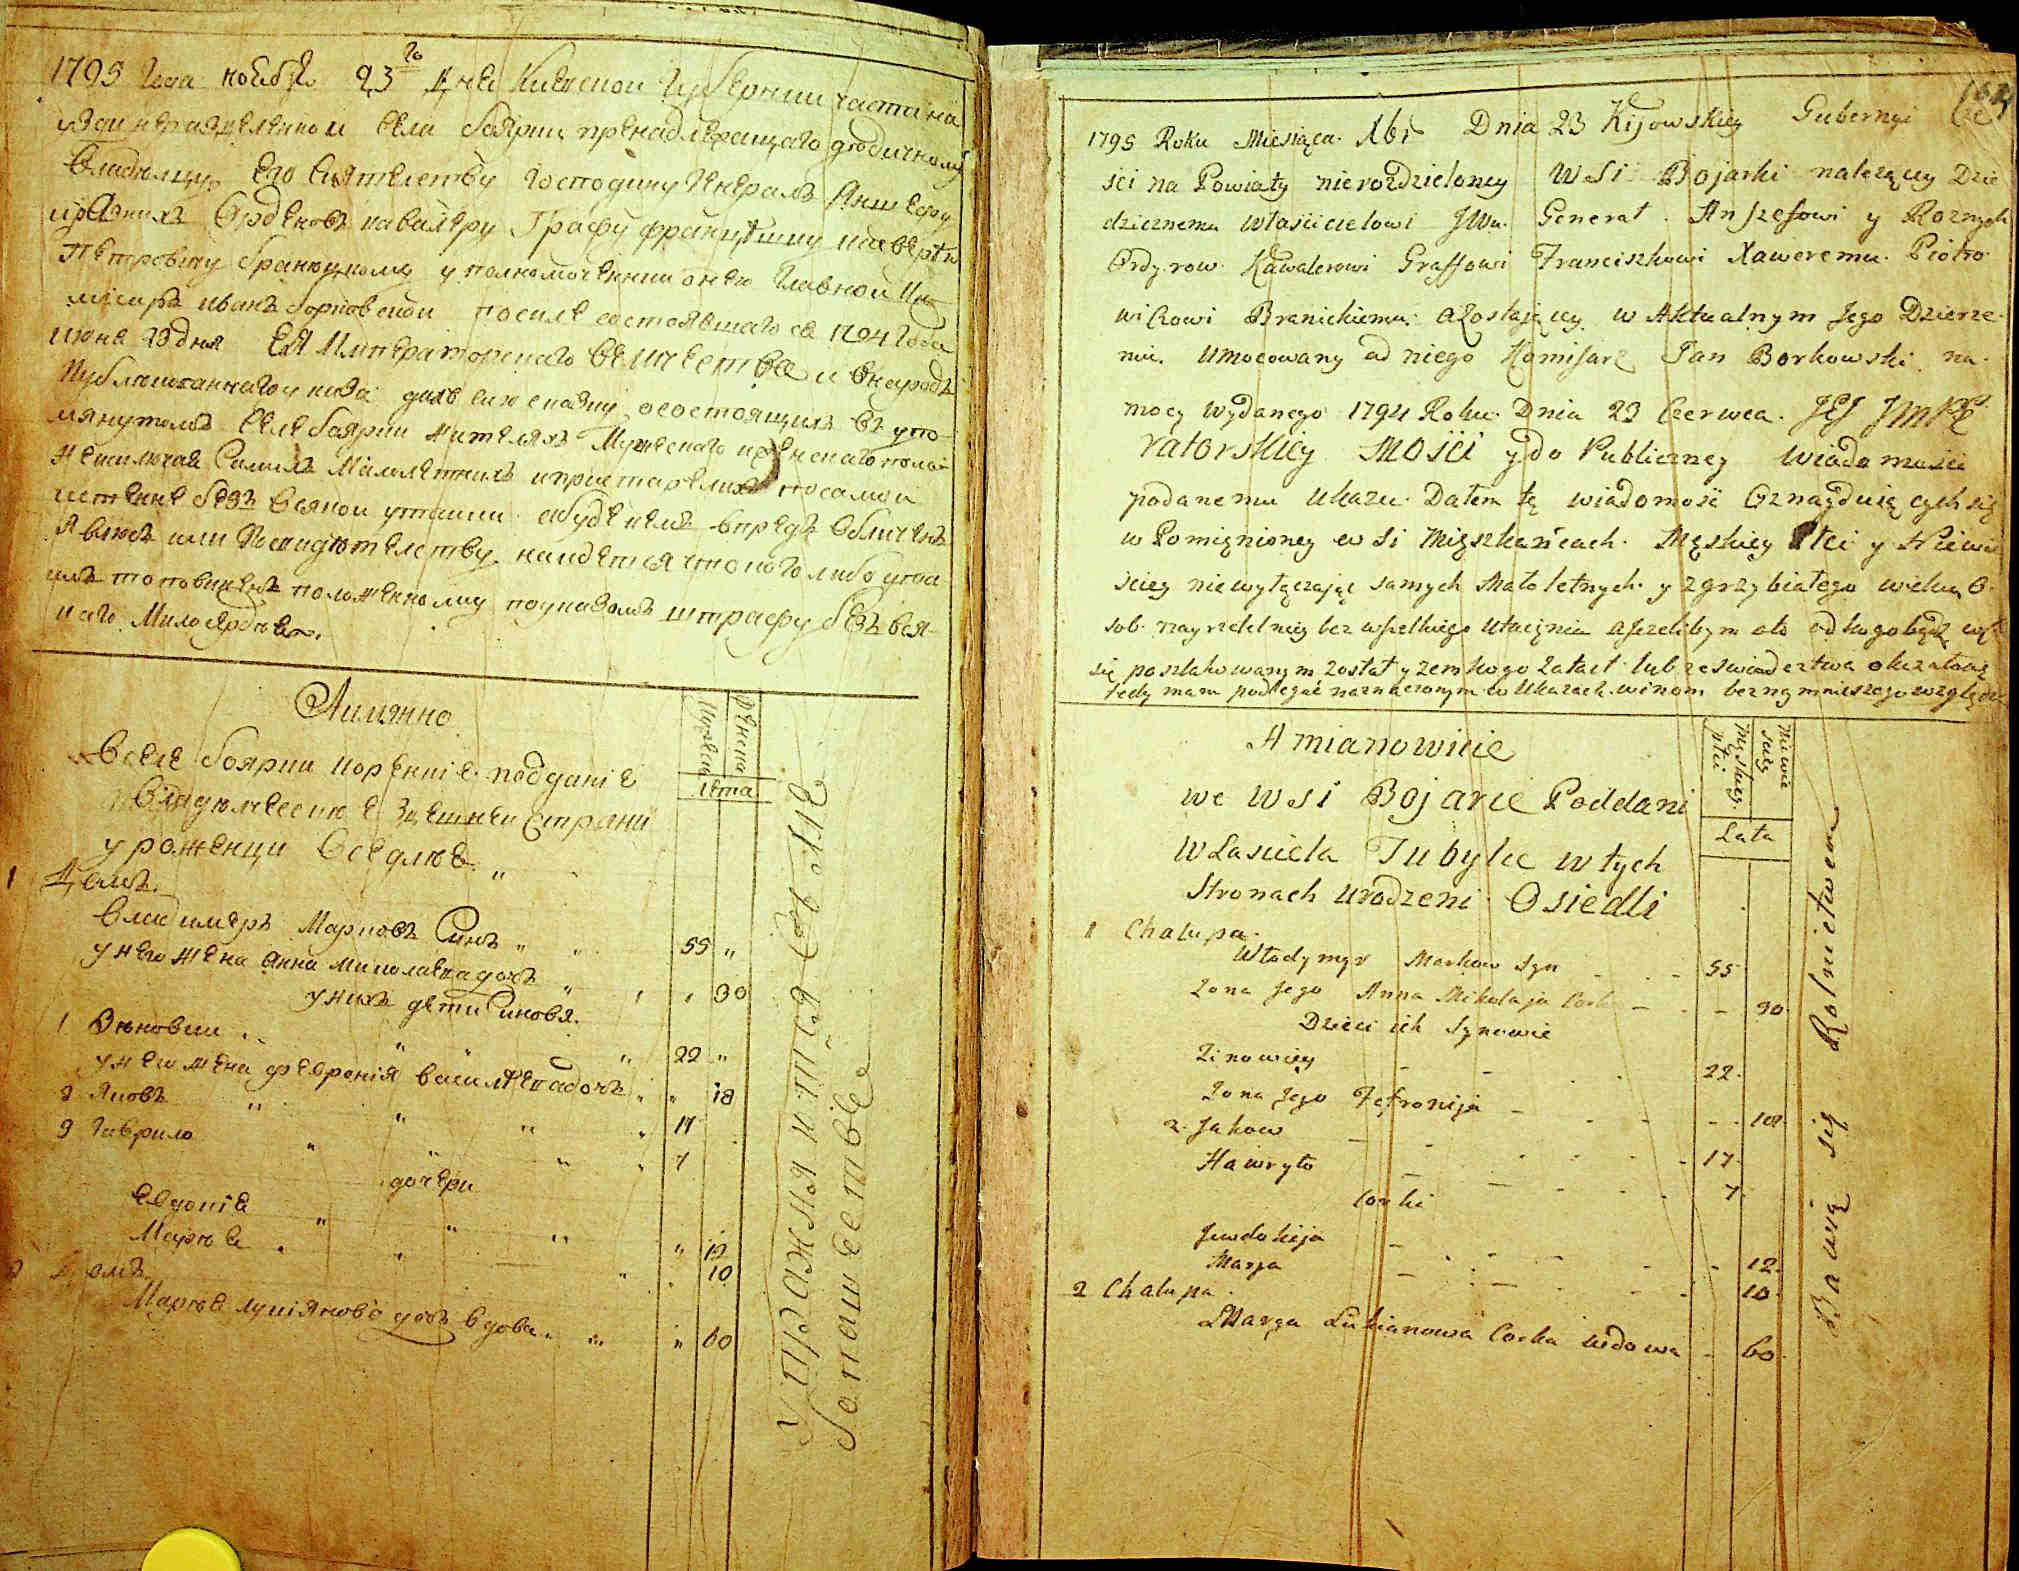 1795 года ноября 23 го дня Киевской Губернии части на
уезди неразделенной села Боярки принадлежащаго дедичному
владельцу его сиятелству господину Генералъ Аншефу
и разнихъ Орденовъ кавалеру Графу францишку ксаверию
Петровичу Браницкому уполномоченний от него главной ко
мисаръ иванъ Борковский по силе состоявшаго ся 1794 года
июня 23 дня ЕЯ Императорскаго величества и внародъ
публикованнаго указа даю сию сказку о состоящихъ въ упо
мянутомъ селе Боярки жителяхъ мужескаго и женскаго пола
не исключая самихъ малолетнихъ и престарелихъ по самой
истинне безъ всякой утайки
наго милосердия.
Аимянно
Мужеска
Женска
лета
в селе Боярки коренние подданіе
владелческие здешней страни
уроженци оседлие
1 Домъ.
Владимеръ Марковъ Синъ 55 "
у него жена Анна Миколаева дочъ " 30
у нихъ дети Синовя.
1 Зѣновии 22 "
у него жена февронія василиева дочъ " 18
2 Яковъ 17
3 гаврило 7
дочери
Евдокія " 12
Мария 10
2 Домъ.
Мария лукіянова дочъ вдова " 60
Упражнятся въ поле
хлебопашестве
1795 Roku Miesiąca Xbr Dnia 23 Kijowskiey Gubernyi Czę
sci na Powiaty nierozdzieloney Wsi Bojarki należący Dzie
dzicznemu właścicielowi JWu. Generał. Anszefowi y Roznych
Ordyrow Kawalerowi Graffowi Franciszkowi Xaweremu Piotro
wiczowi Branickiemu. a zostający w Aktualnym Jego Dzierże
niu. Umocowany od niego Komisarz Jan Borkowski na
mocy wydanego 1794 Roku Dnia 23 Czerwca. JEJ JMPE
ratorskiey Mości y do Publiczney wiadomości
podanemu Ukazu Datem tę wiadomość Oznayduiących się
w Pomienioney wsi Mięszkańcach. Męskiey Płci y Niewie
ściey niewyłączając samych Małoletnych y zgrzybiałego wieku O
sob nayrzetelniey bez wszelkiego Utaienia a jzelibym oto od kogo bądź
się poszlakowanym został y żem kogo zataił lub ze swiadectwa okazałosię
tedy mam podlegać naznaczonym w Ukazach winom bez naymnieiszego względu
A mianowicie
Męskiey płci
Niewie sciey
Lata
we Wsi Bojarce Poddani
Własciciela Tubylce w tych
Stronach urodzeni Osiedli
1 Chalupa.
Włodymyr Markow Syn - - - 55
Zona Jego Anna Mikolaja Corka - - - 30
Dzieci ich Synowie
Zinowiey - - 22.
Zona Jego Fefronija - - - 18
2. Jakow - - - 17.
Hawryło - - - 7.
Corki
Jewdokija - - - 12.
Marya - - - 10.
2 Chalupa.
Marya Lukianowa Corka wdowa - 60.
Bawią się Rolnictwem